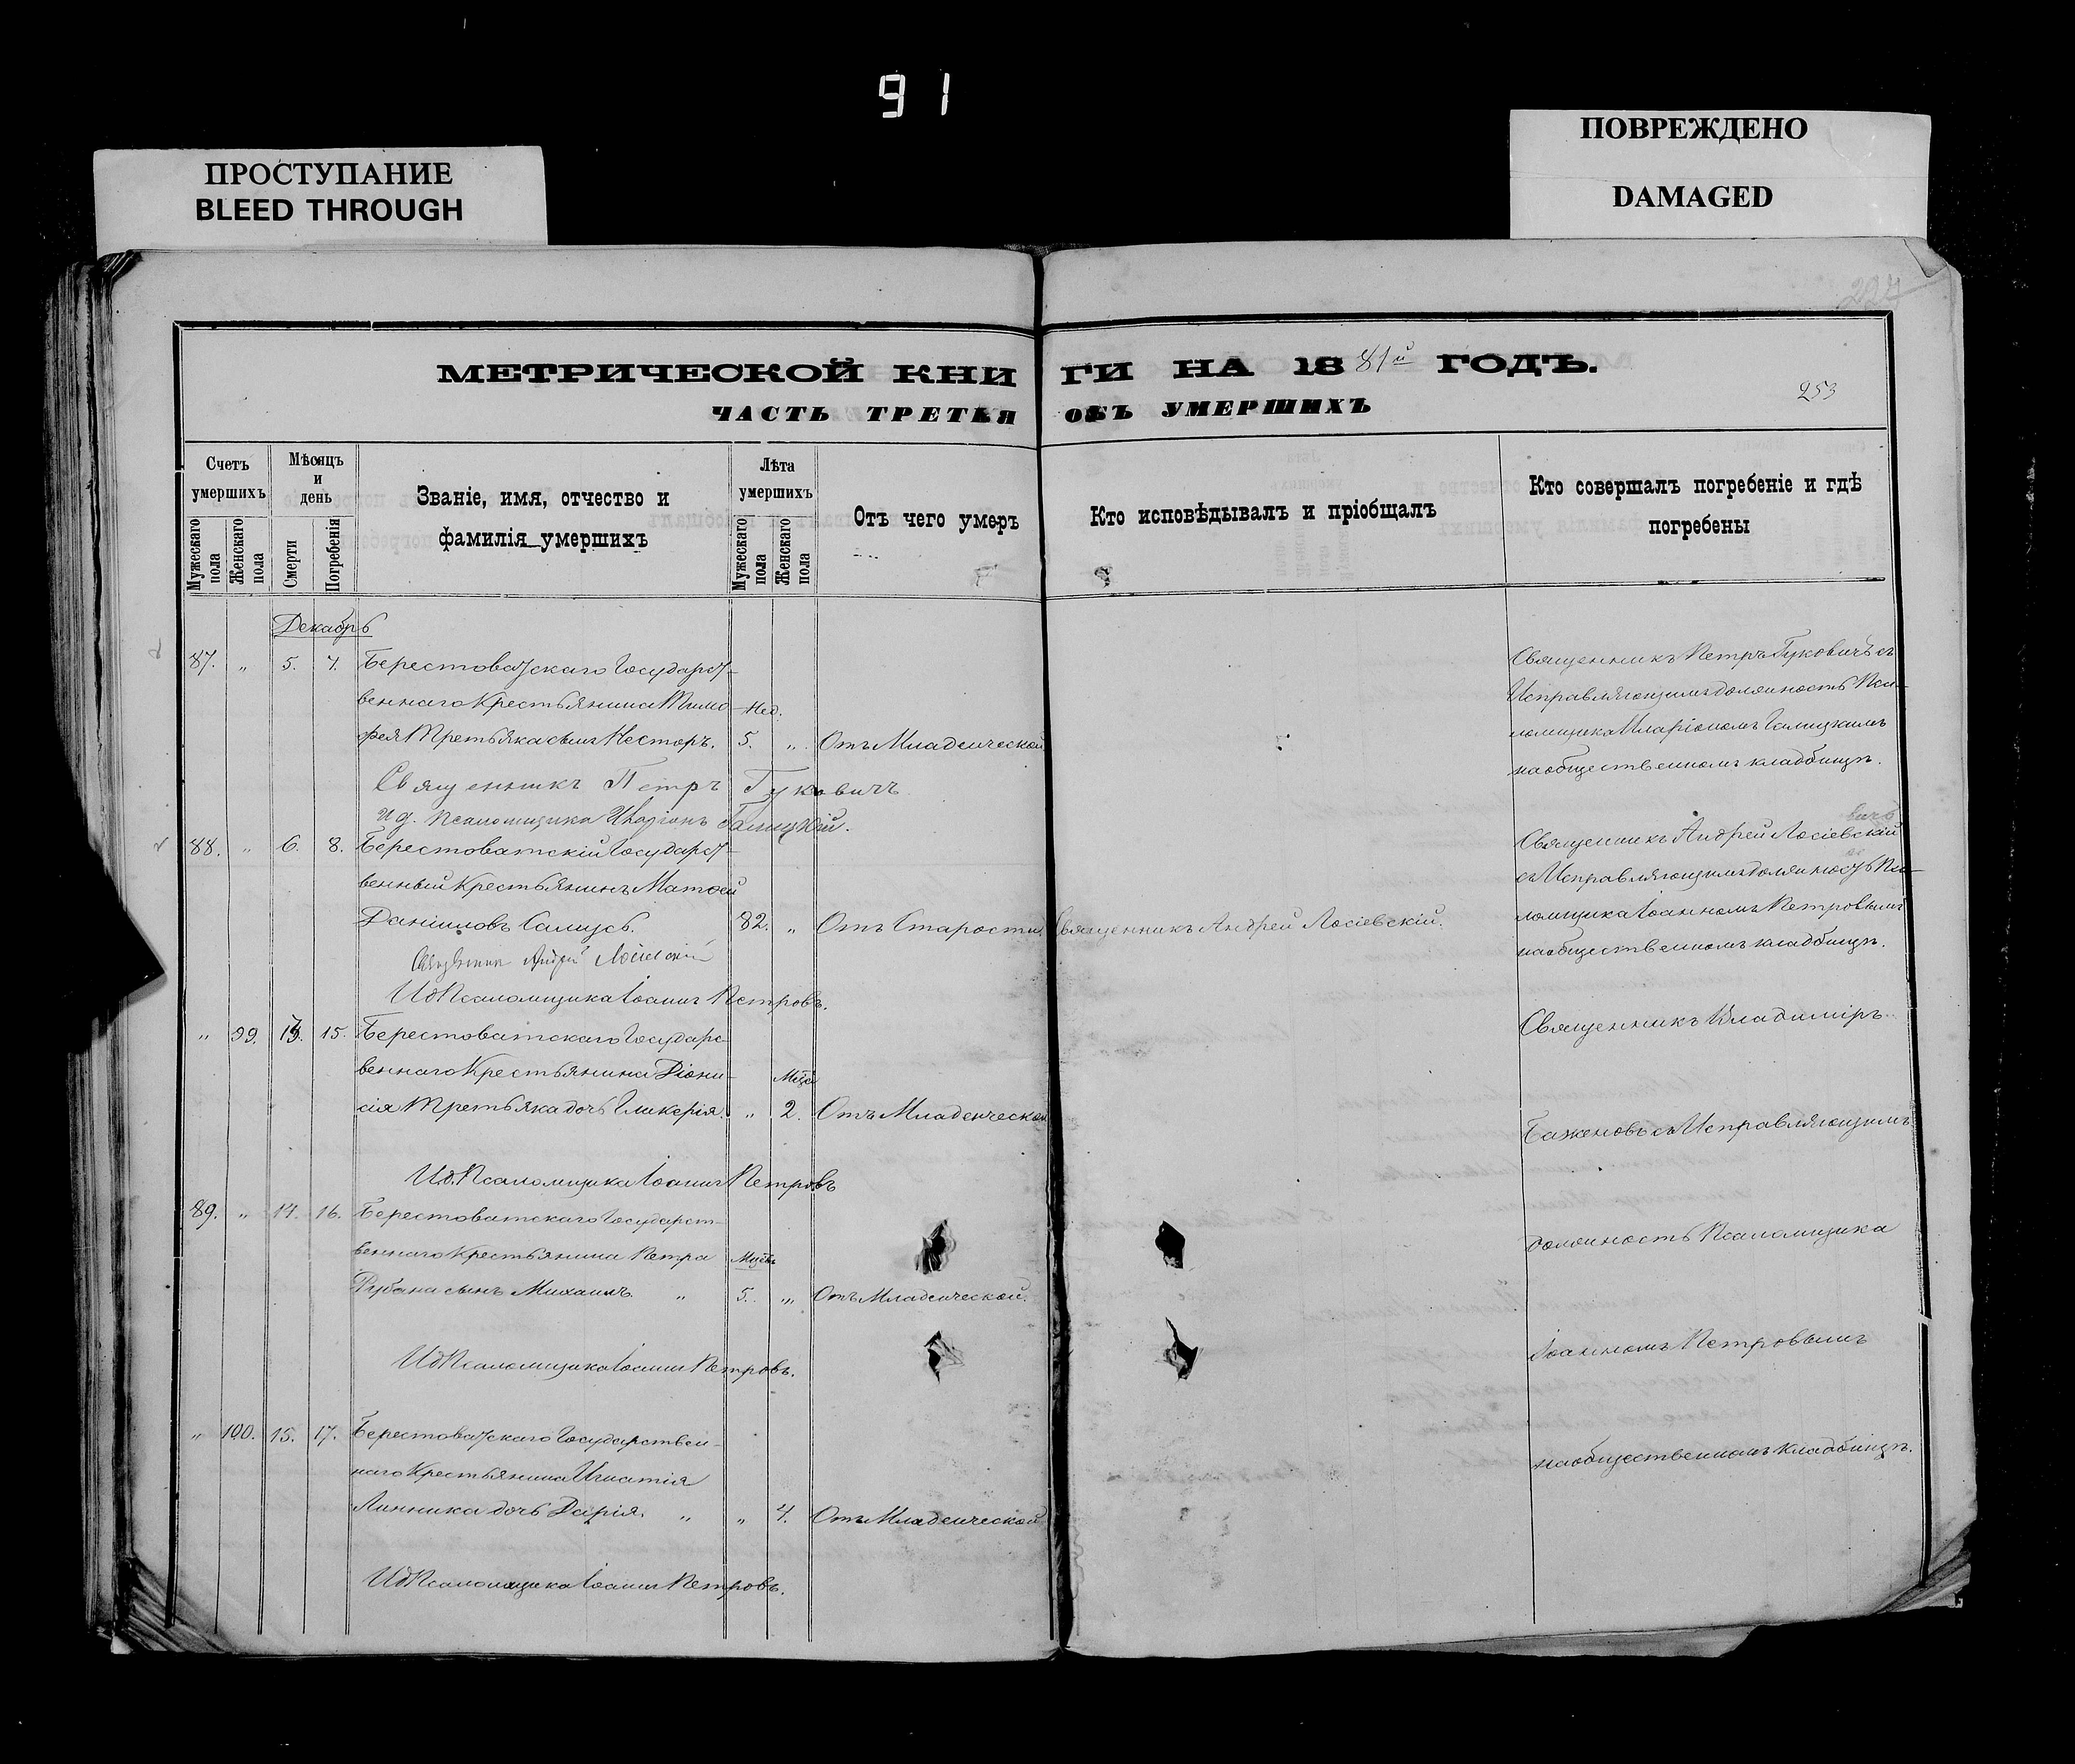 91
ПРОСТУПАНИЕ
BLEED THROUGH
ПОВРЕЖДЕНО
DAMAGED
227
МЕТРИЧЕСКОЙ КНИГИ НА 1881й ГОДЪ.
253
ЧАСТЬ ТРЕТЬЯ ОБЪ УМЕРШИХЪ
Счетъ умершихъ
Мужескаго пола
Женскаго пола
Мѣсяцъ и день
Смерти
Погребенія
Званіе, имя, отчество и фамилія умершихъ
Лѣта умершихъ
Мужескаго пола
Женскаго пола
Отъ чего умеръ
Кто исповѣдывалъ и пріобщалъ
Кто совершалъ погребеніе и гдѣ погребены
Декабрь
87. „ 5. 7. Берестоватскаго Государст-
веннаго Крестьянина Тимо Нед.
фея Третьяка сынъ Несторъ. 5. „ Отъ Младенческой
Священникъ Петръ Гуковичъ съ
Исправляющимъ должность Пса-
ломщика Иларіономъ Галицкимъ
на общественномъ кладбищѣ.
Священникъ Петръ Гуковичъ
И д. Псаломщика Иларіонъ Галицкій.
88. „ 6. 8. Берестоватскій Государст-
венный Крестьянинъ Матѳей
Даніиловъ Самусь. 82. „ Отъ Старости. Священникъ Андрей Лосіевскій.
Священникъ Андрей Лосіевскій
съ Исправляющимъ должность Пса-
ломщика Іоанномъ Петровымъ
на общественномъ кладбищѣ.
Священникъ Андрей Лосіевскій
И д Псаломщика Іоаннъ Петровъ.
„ 99. 13. 15. Берестоватскаго Государс-
веннаго Крестьянина Діони- Мѣся
сія Третьяка дочь Гликерія. „ 2. Отъ Младенческой
И. д. Псаломщика Іоаннъ Петровъ
89. „ 14. 16. Берестоватскаго Государст-
веннаго Крестьянина Петра Мѣсяц
Рубана сынъ Михаилъ. „ 5. „ Отъ Младенческой.
И д Псаломщика Іоаннъ Петровъ.
„ 100. 15. 17. Берестоватскаго Государствен-
наго Крестьянина Игнатія
Линника дочь Дарія. „ „ 4. Отъ Младенческой
И д Псаломщика Іоаннъ Петровъ.
Священникъ Владиміръ
Баженовъ съ Исправляющимъ
должность Псаломщика
Іоанномъ Петровымъ
на общественномъ кладбищѣ.